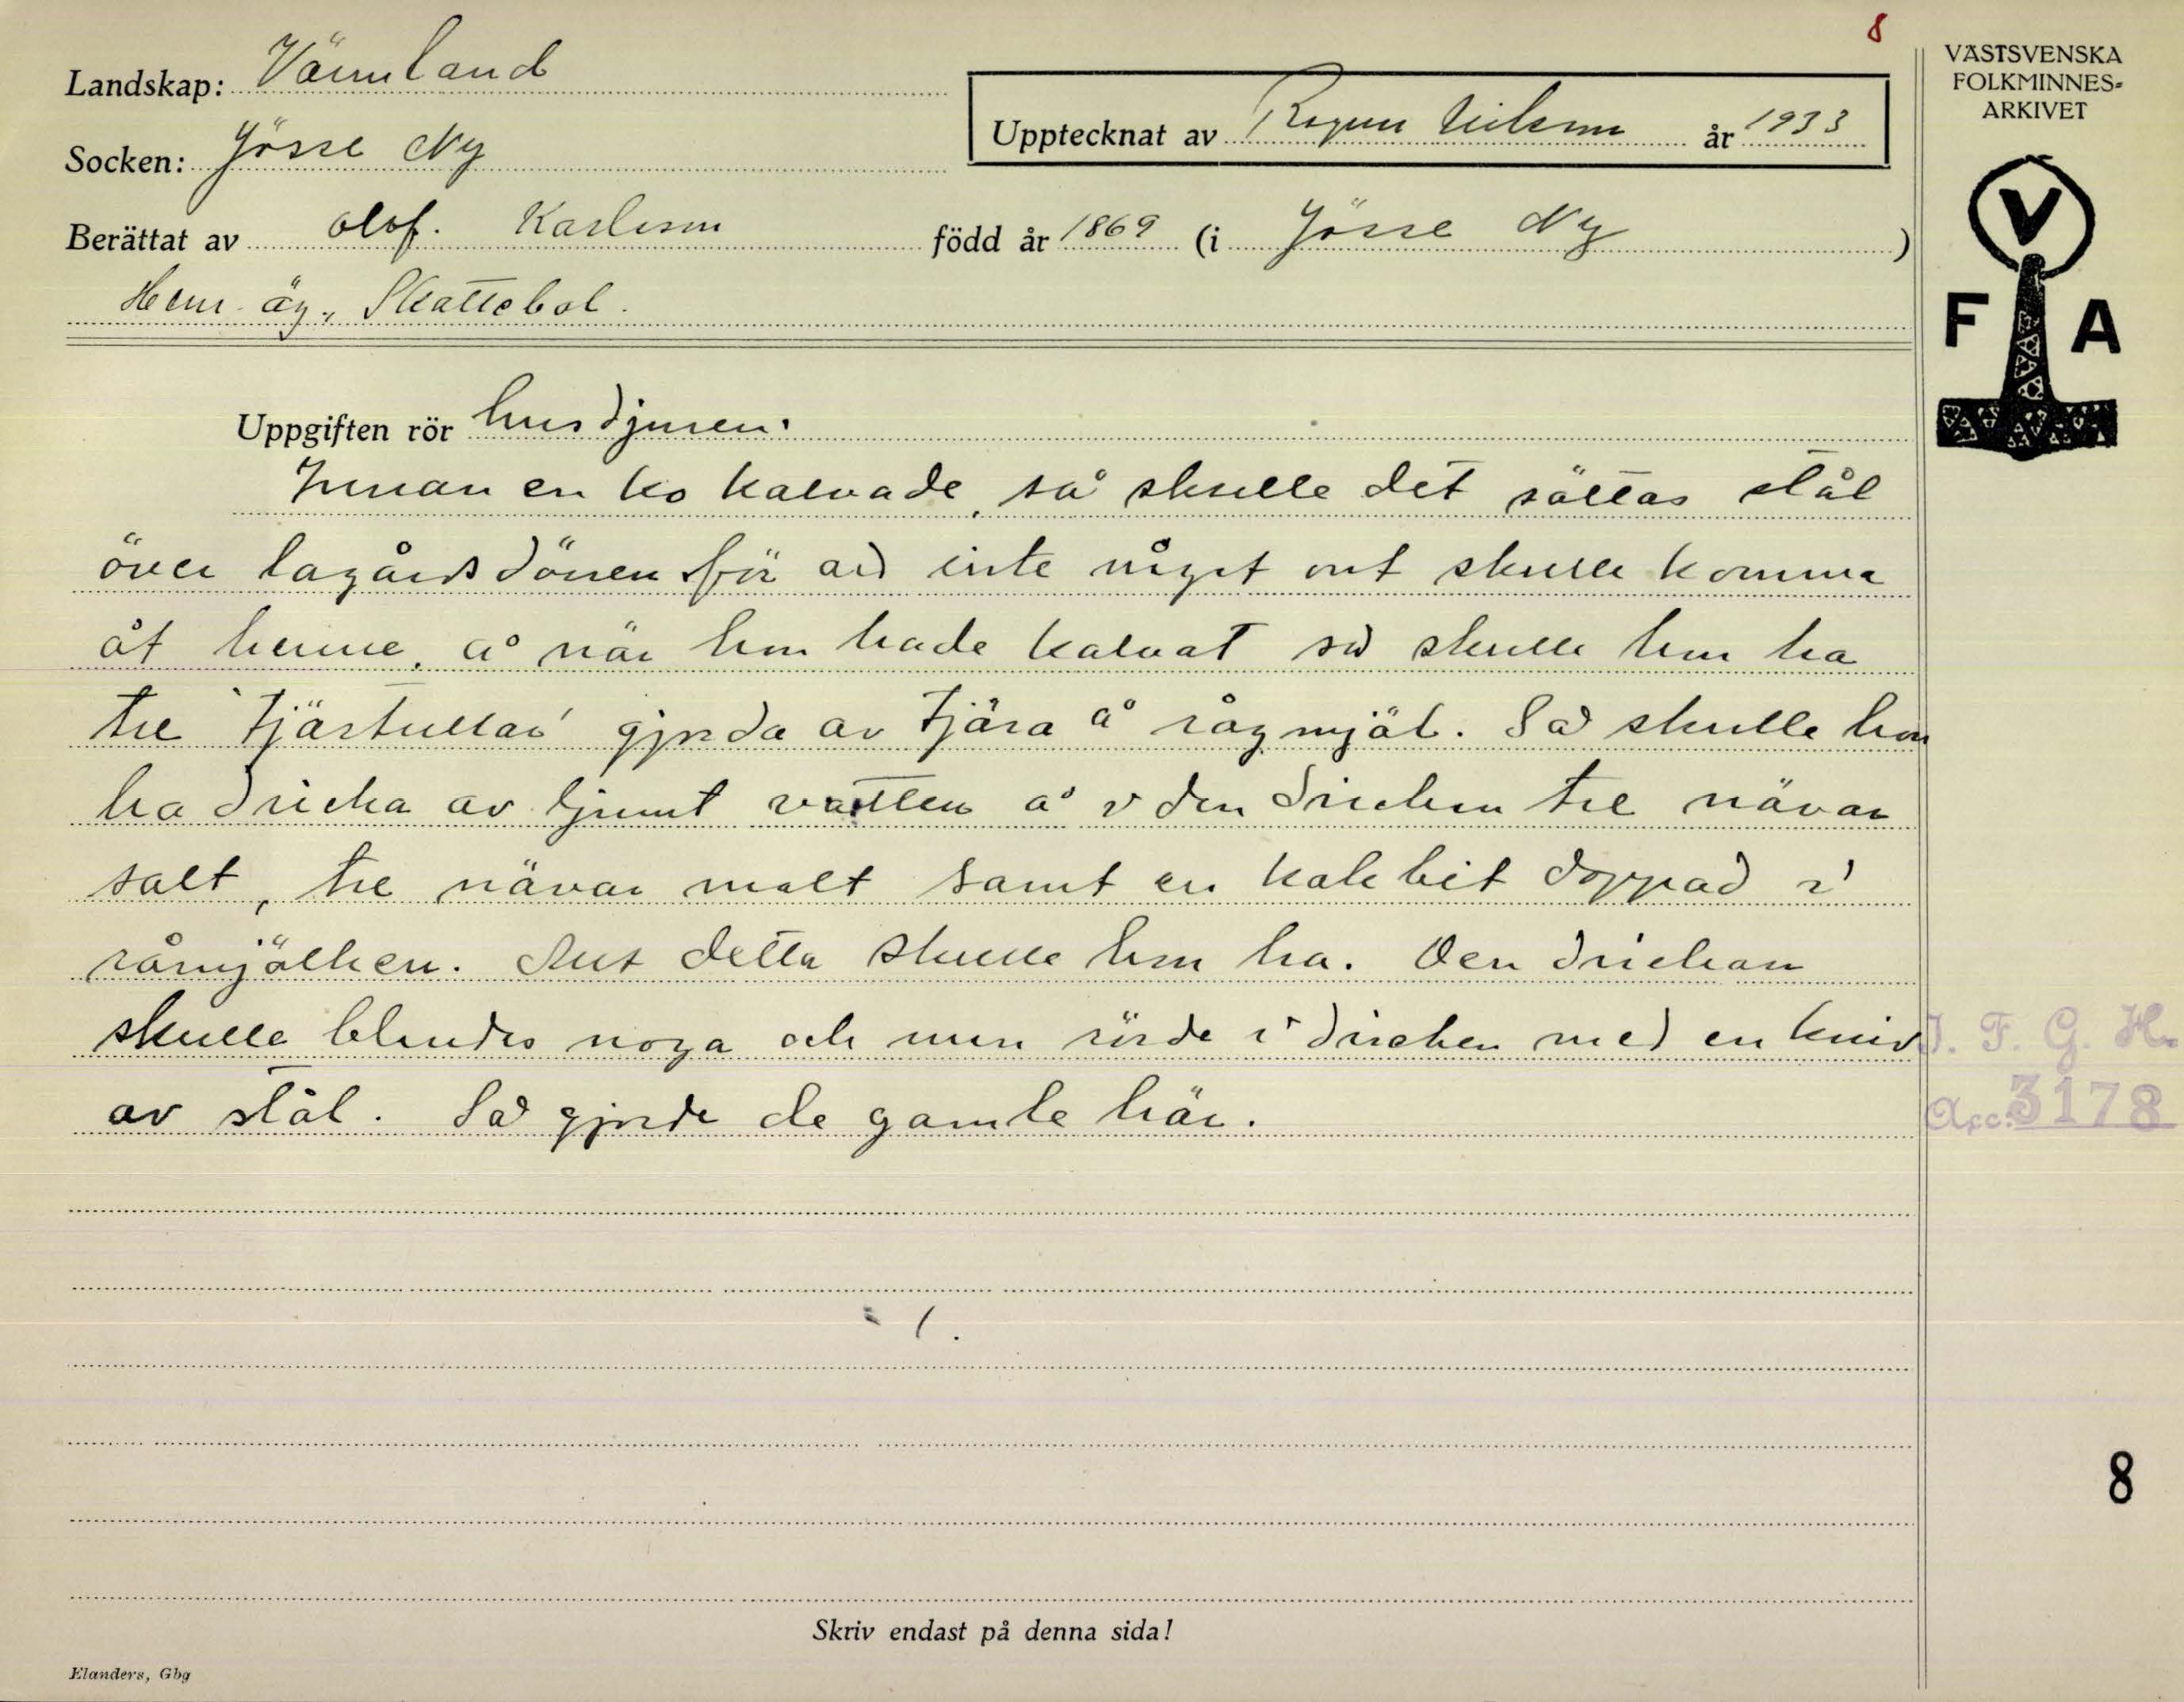 8
Landskap: Värmland
Socken: Jösse Ny
Upptecknat av Ragnar Nilsson år 1933
Berättat av Olof. Karlsson född år 1869 (i Jösse Ny)
Hem. äg., Skattebol.
VÄSTSVENSKA
FOLKMINNES-
ARKIVET
V
F A
Uppgiften rör husdjuren.
Innan en ko kalvade, så skulle det sättas stål
över lagårdsdörren för att inte något ont skulle komma
åt henne, å när hon hade kalvat så skulle hon ha
tre "tjärtullar" gjorda av tjära å rågmjöl. Så skulle hon
ha dricka av ljumt vatten å i den drickan tre nävar
salt, tre nävar malt samt en kak bit doppad i
råmjölken. Allt detta skulle hon ha. Den drickan
skulle blandas noga och man rörde i drickan med en kniv
av stål. Så gjorde de gamle här.
I. F. G. H.
Acc. 3178
8
Skriv endast på denna sida!
Elanders, Gbg